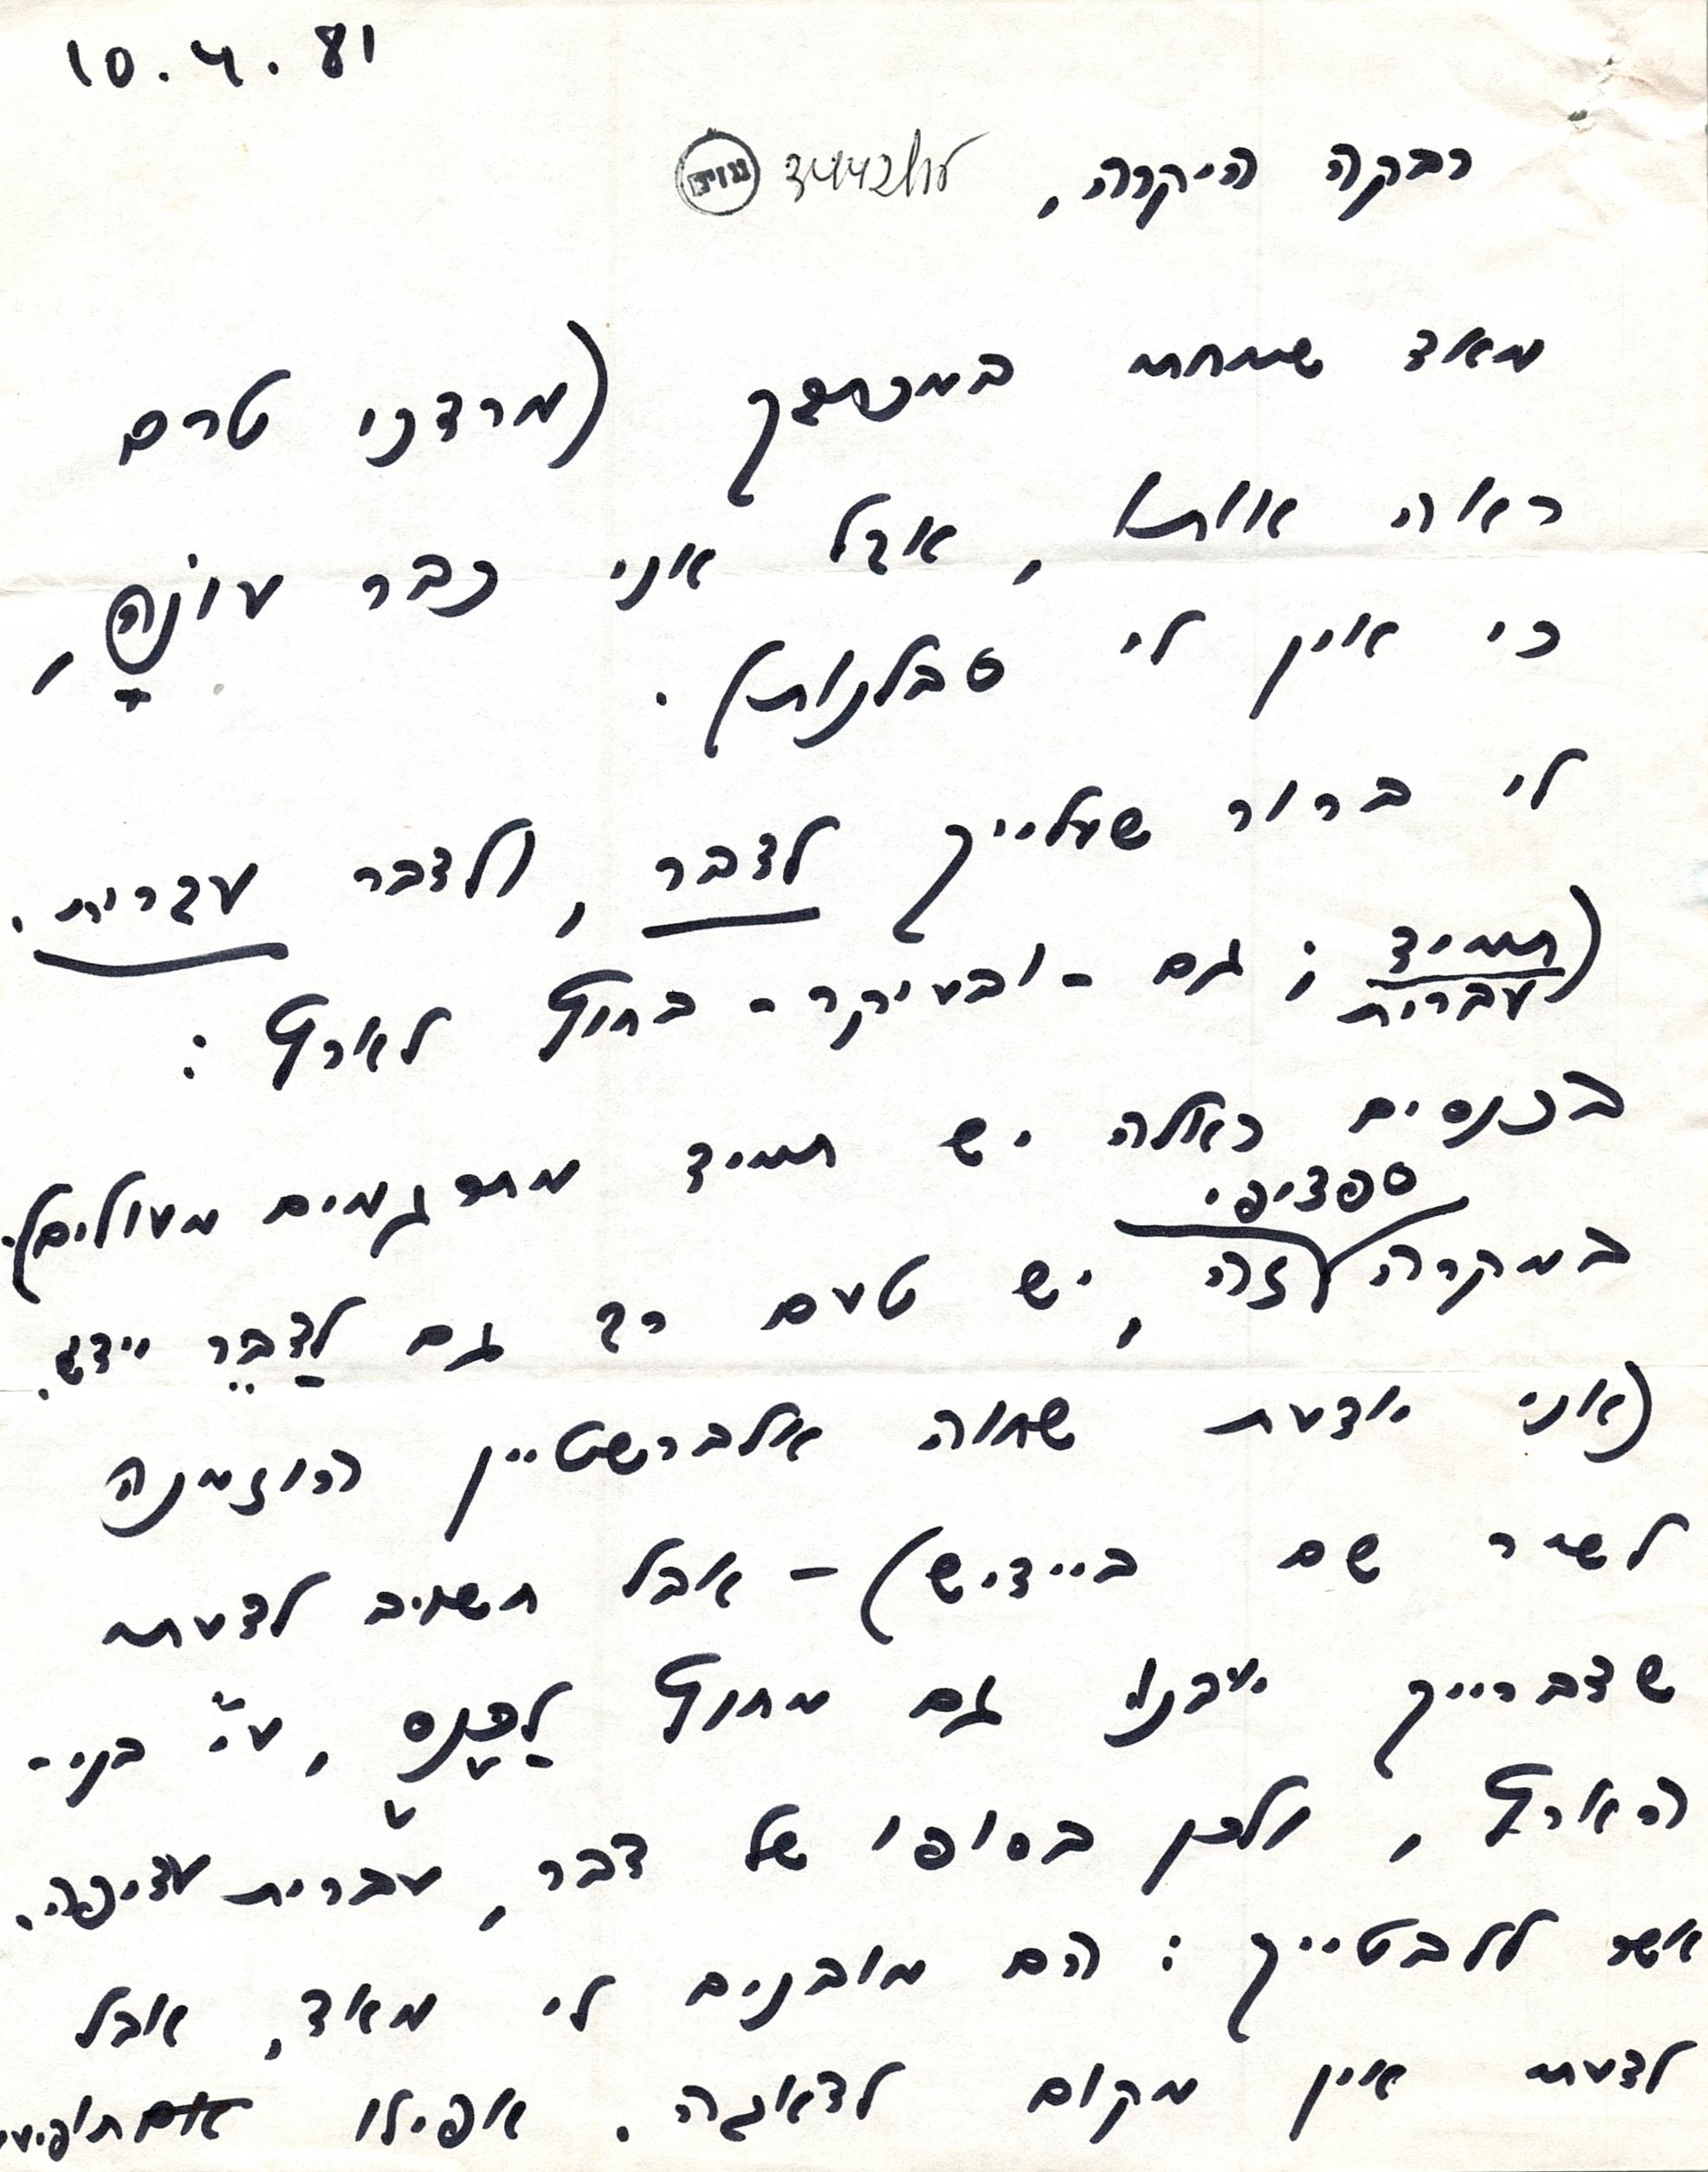 10.4.81
רבקה היקרה,
מאד שמחתי במכתבך (מרדכי טרם
ראה אותו, אבל אני כבר עוֹנָה,
כי אין לי סבלנות).
לי ברור שעלייך לדבר, ולדבר עברית.
(תמיד עברית; גם - ובעיקר - בחוץ לארץ:
בכנסים כאלה יש תמיד מתרגמים מעולים).
במקרה ספציפי זה, יש טעם רב גם לְדַבֵּר יידיש.
(אני יודעת שחוה אלברשטיין הוזמנה
לשיר שם ביידיש) – אבל חשוב לדעתי
שדברייך יובנו גם מחוץ לַכֶּנֶס, ע"י בני-
הארץ, ולכן בסופו של דבר, עברית עדיפה.
אשר ללבטייך: הם מובנים לי מאד, אבל
לדעתי אין מקום לדאגה. אפילו אם תופיעי